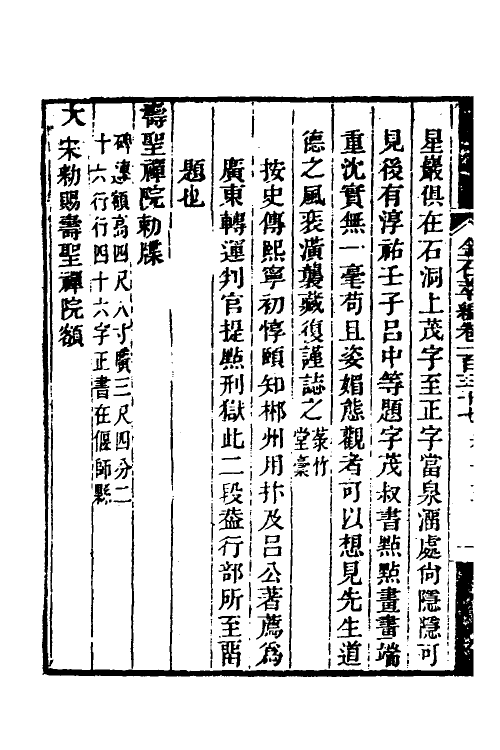 星巖俱在石洞上茂字至正字當泉溜處尙隱隱可
見後有淳祐壬子呂中等題字茂叔書點點畫畫端
重沈實無一毫苟且姿媚態觀者可以想見先生道
德之風裴潢襲藏復謹誌之菉竹堂稾
按史傳熙寧初惇頤知郴州用抃及呂公著薦爲
廣東轉運判官提點刑獄此二段葢行部所至畱
題也
壽聖禪院勅牒
碑連額高四尺八寸廣三尺四分二
十六行行四十六字正書在偃師縣
大宋勅賜壽聖禪院額
金石萃編卷一百三十七